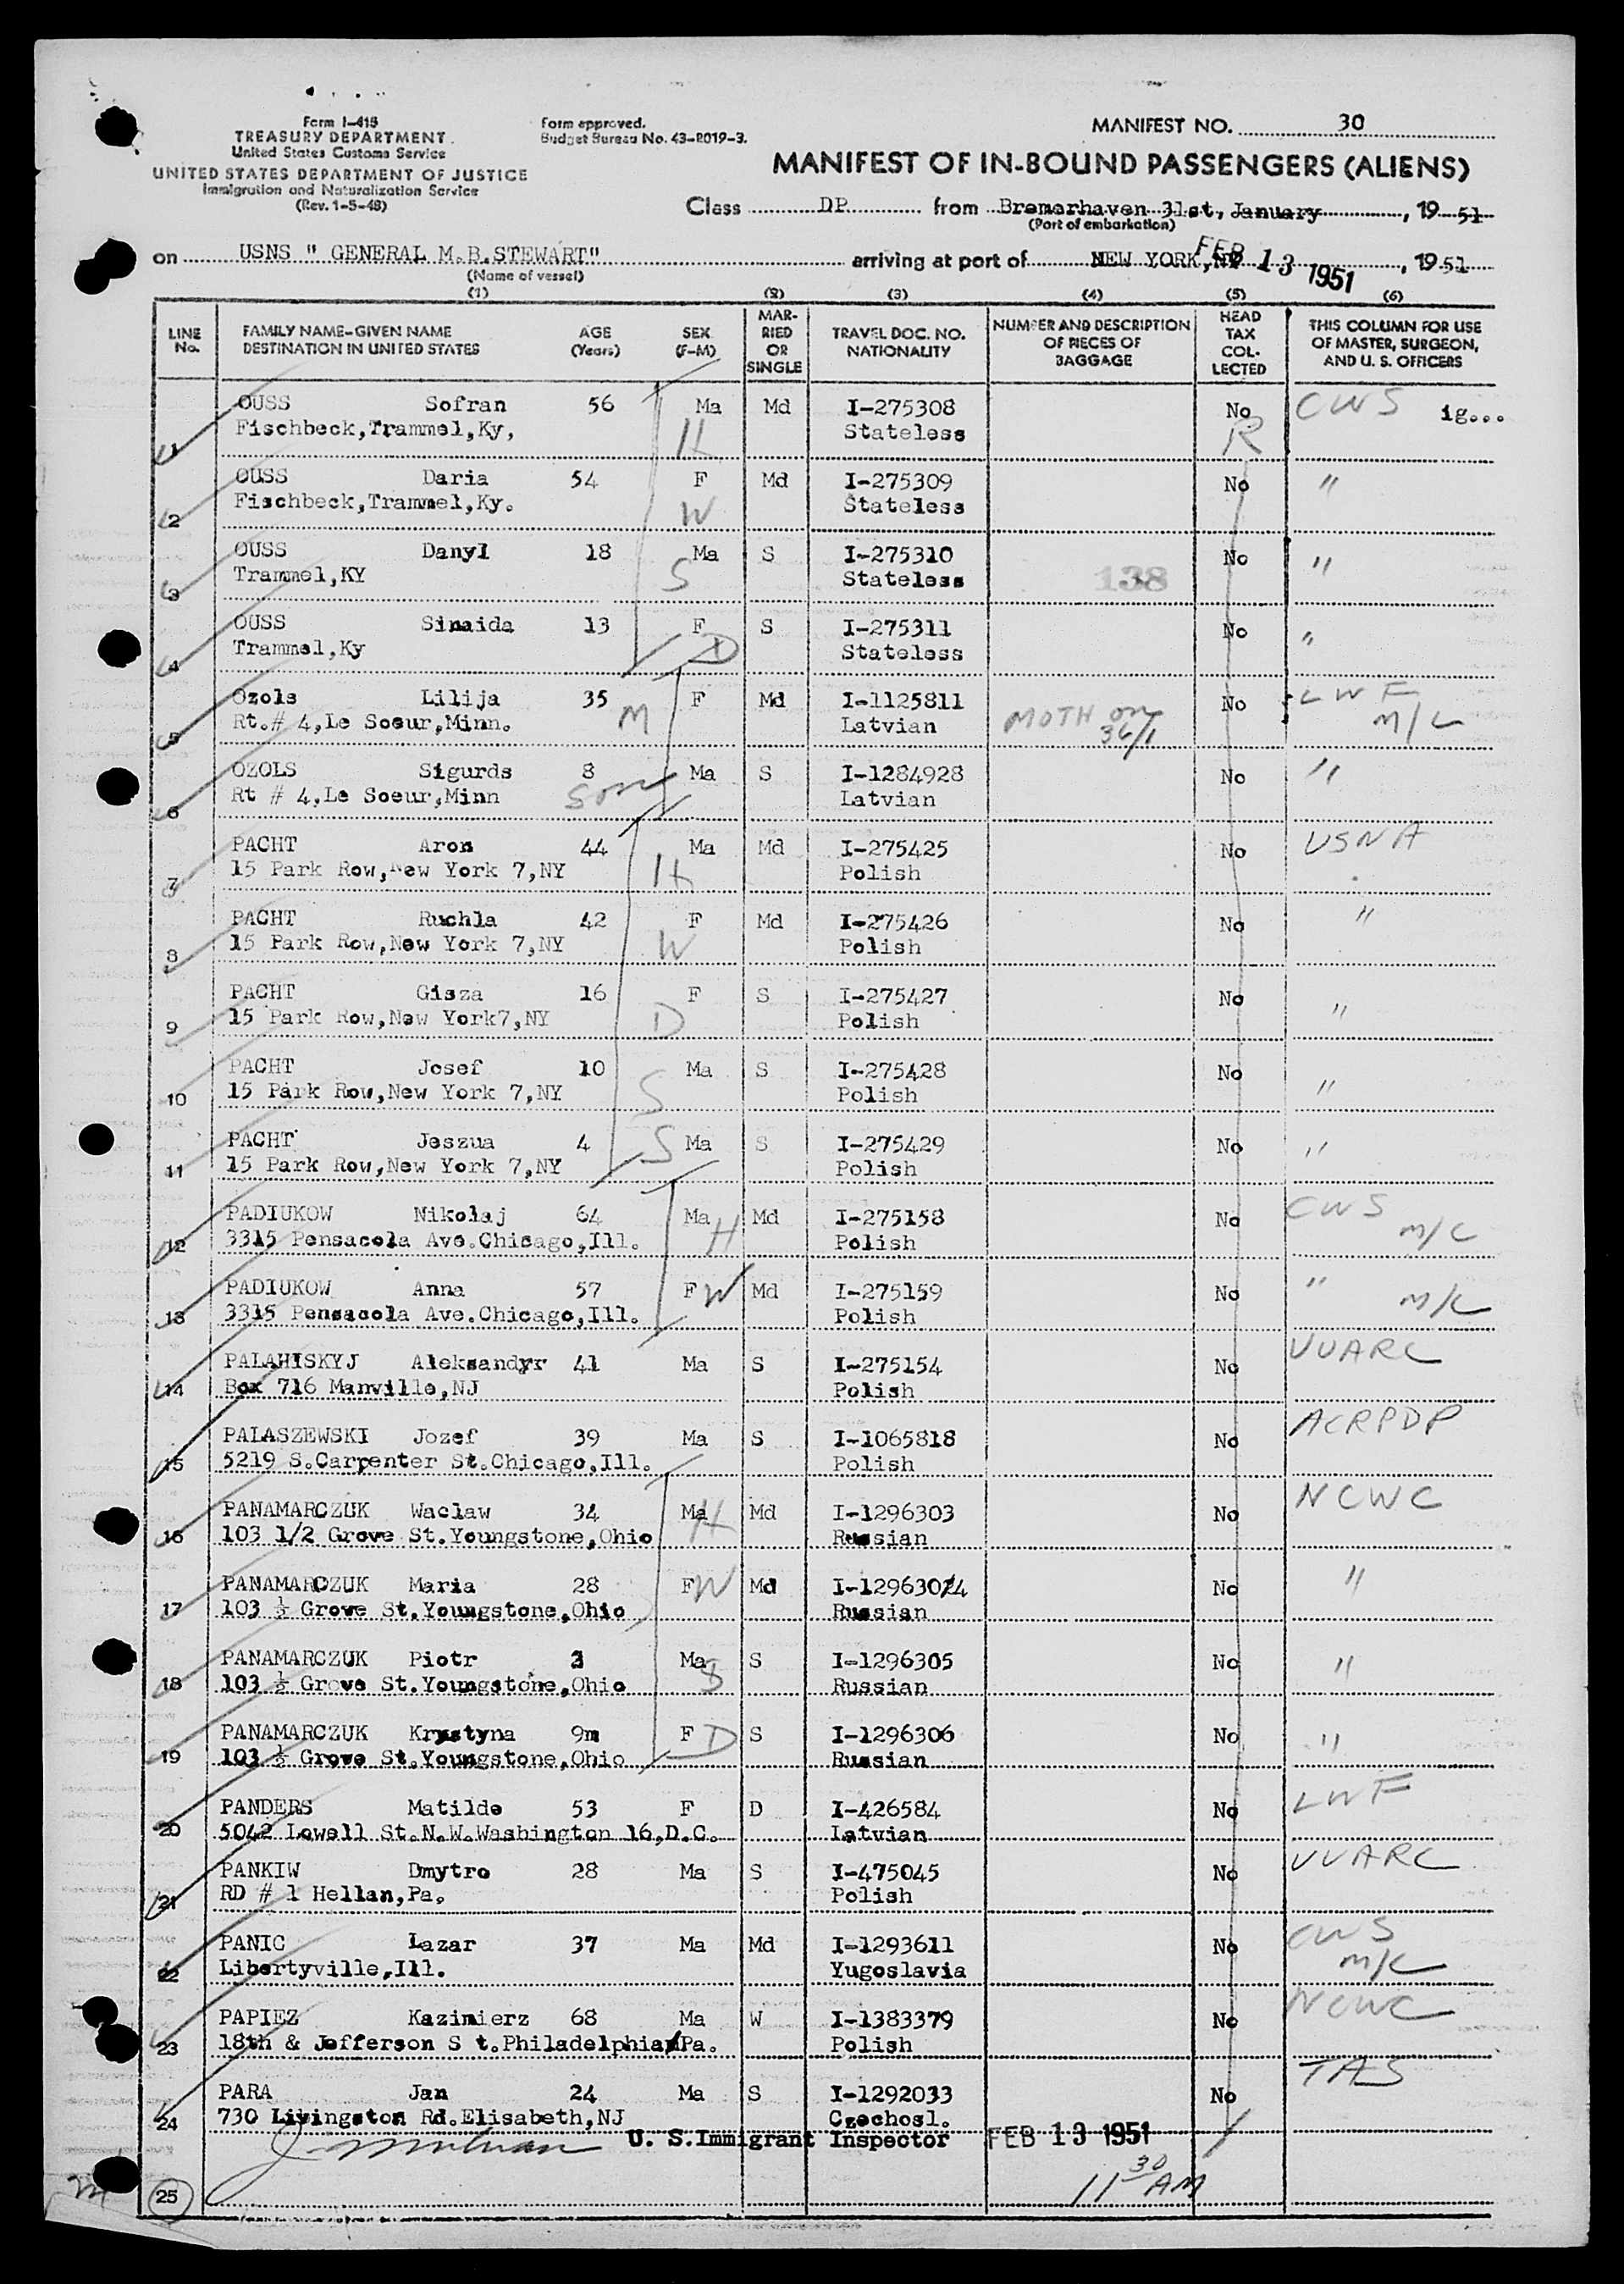 Form I-418
TREASURY DEPARTMENT
United States Customs Service
UNITED STATES DEPARTMENT OF JUSTICE
Immigration and Naturalization Service
(Rev. 1-5-48)
Form approved.
Budget Bureau No. 43-R019-3.
MANIFEST NO. 30
MANIFEST OF IN-BOUND PASSENGERS (ALIENS)
Class DP from Bremerhaven 31st, January, 1951
(Port of embarkation)
on USNS " GENERAL M.B.STEWART" arriving at port of NEW YORK,NY FEB 13 1951, 1951
(Name of vessel)
(1) (2) (3) (4) (5) (6)
LINE No. FAMILY NAME-GIVEN NAME DESTINATION IN UNITED STATES AGE (Years) SEX (F-M) MARRIED OR SINGLE TRAVEL DOC. NO. NATIONALITY NUMBER AND DESCRIPTION OF PIECES OF BAGGAGE HEAD TAX COLLECTED THIS COLUMN FOR USE OF MASTER, SURGEON, AND U. S. OFFICERS
OUSS Sofran 56 Ma Md I-275308 No CWS ig...
1 Fischbeck,Trammel,Ky, H Stateless R
OUSS Daria 54 F Md I-275309 No "
2 Fischbeck,Trammel,Ky. W Stateless
OUSS Danyl 18 Ma S I-275310 No "
3 Trammel,KY S Stateless 138
OUSS Sinaida 13 F S I-275311 No "
4 Trammel,Ky D Stateless
Ozols Lilija 35 F Md I-1125811 No LWF
5 Rt.# 4,Le Soeur,Minn. M Latvian MOTH on 36/1 M/C
OZOLS Sigurds 8 Ma S I-1284928 No "
6 Rt # 4,Le Soeur,Minn Son Latvian
PACHT Aron 44 Ma Md I-275425 No USNA
7 15 Park Row,New York 7,NY H Polish
PACHT Ruchla 42 F Md I-275426 No "
8 15 Park Row,New York 7,NY W Polish
PACHT Gisza 16 F S I-275427 No "
9 15 Park Row,New York7,NY D Polish
PACHT Josef 10 Ma S I-275428 No "
10 15 Park Row,New York 7,NY S Polish
PACHT Jeszua 4 Ma S I-275429 No "
11 15 Park Row,New York 7,NY S Polish
PADIUKOW Nikolaj 64 Ma Md I-275158 No CWS
12 3315 Pensacola Ave.Chicago,Ill. H Polish M/C
PADIUKOW Anna 57 F W Md I-275159 No "
13 3315 Pensacola Ave.Chicago,Ill. Polish M/C
PALAHISKYJ Aleksandyr 41 Ma S I-275154 No UUARC
14 Box 716 Manville,NJ Polish
PALASZEWSKI Jozef 39 Ma S I-1065818 No ACRPDP
15 5219 S.Carpenter St.Chicago,Ill. Polish
PANAMARCZUK Waclaw 34 Ma H Md I-1296303 No NCWC
16 103 1/2 Grove St.Youngstone,Ohio Russian
PANAMARCZUK Maria 28 F W Md I-1296304 No "
17 103 ½ Grove St.Youngstone,Ohio Russian
PANAMARCZUK Piotr 3 Ma S S I-1296305 No "
18 103 ½ Grove St.Youngstone,Ohio Russian
PANAMARCZUK Krystyna 9m F D S I-1296306 No "
19 103 ½ Grove St.Youngstone,Ohio Russian
PANDERS Matilde 53 F D I-426584 No LWF
20 5042 Lowell St.N.W.Washington 16,D.C. Latvian
PANKIW Dmytro 28 Ma S I-475045 No UUARC
21 RD # 1 Hellan,Pa. Polish
PANIC Lazar 37 Ma Md I-1293611 No CWS
22 Libertyville,Ill. Yugoslavia M/C
PAPIEZ Kazimierz 68 Ma W I-1383379 No NCWC
23 18th & Jefferson S t.Philadelphia,Pa. Polish
PARA Jan 24 Ma S I-1292033 No TAS
24 730 Livingston Rd.Elisabeth,NJ Czechosl.
U. S.Immigrant Inspector FEB 13 1951
25 11 30 AM